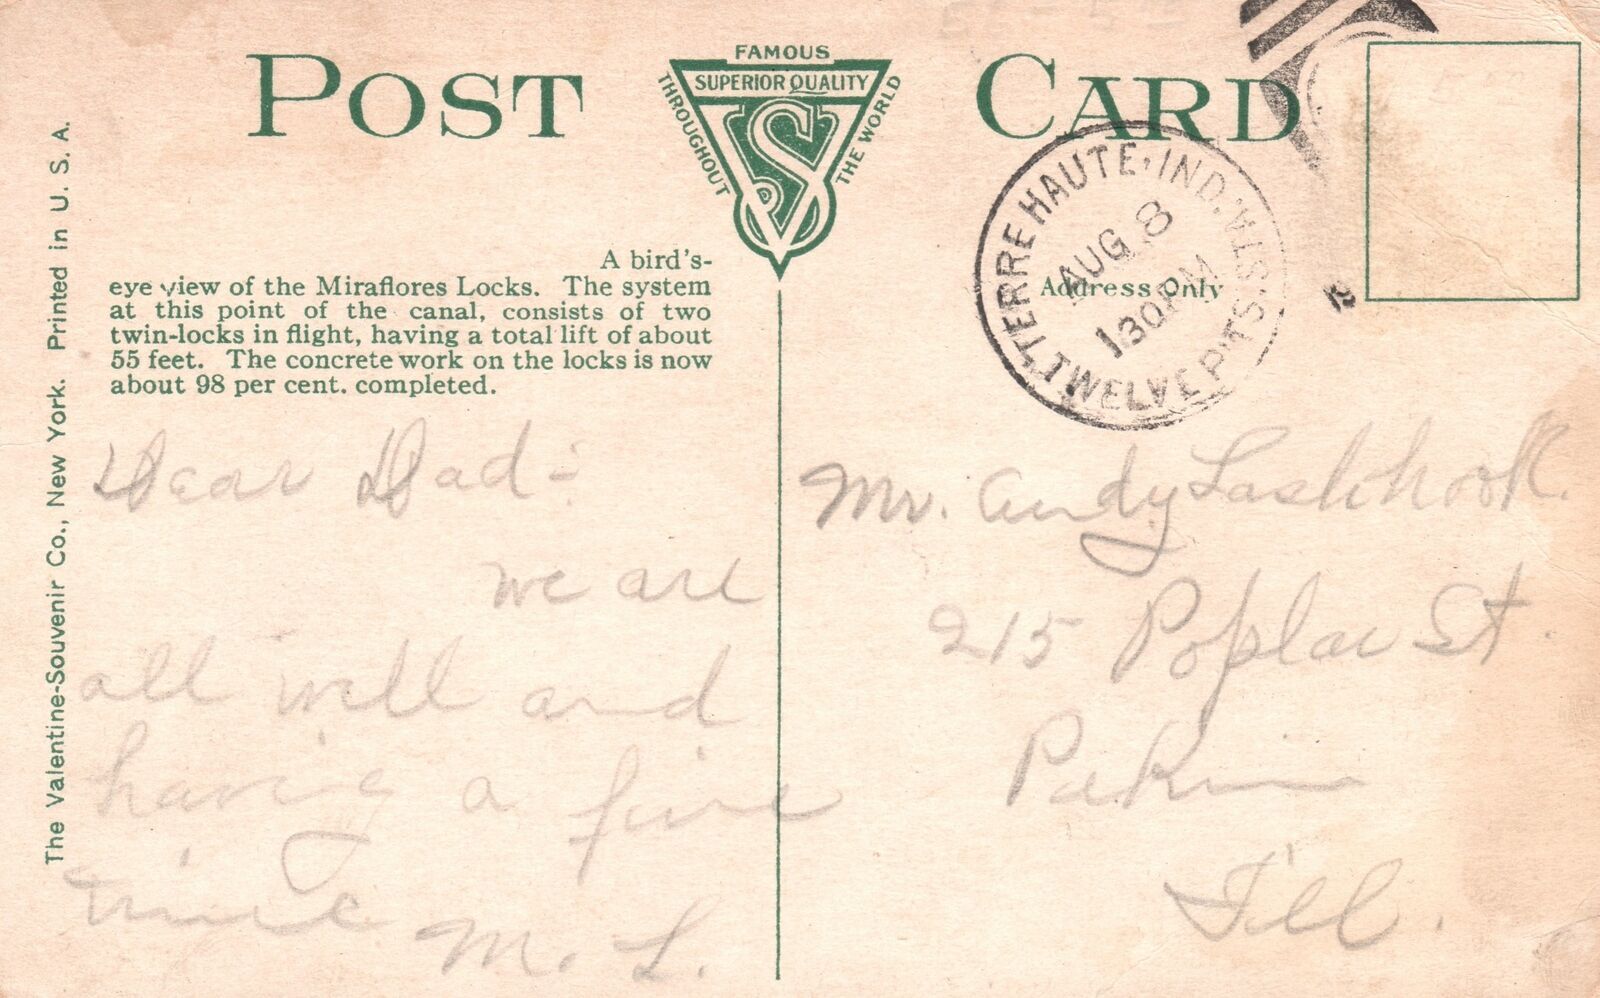 POST CARD
FAMOUS
SUPERIOR QUALITY
THROUGHOUT
THE WORLD
VS
The Valentine-Souvenir Co., New York. Printed in U. S. A.
A bird's-
eye view of the Miraflores Locks. The system
at this point of the canal, consists of two
twin-locks in flight, having a total lift of about
55 feet. The concrete work on the locks is now
about 98 per cent. completed.
Address Only
TERRE HAUTE, IND.
AUG 8
130 PM
TWELVE P'TS.
Dear Dad-
we are
all well and
having a fine
time
M. L.
Mr. Andy
215 Poplar St.
Pekin
Ill.